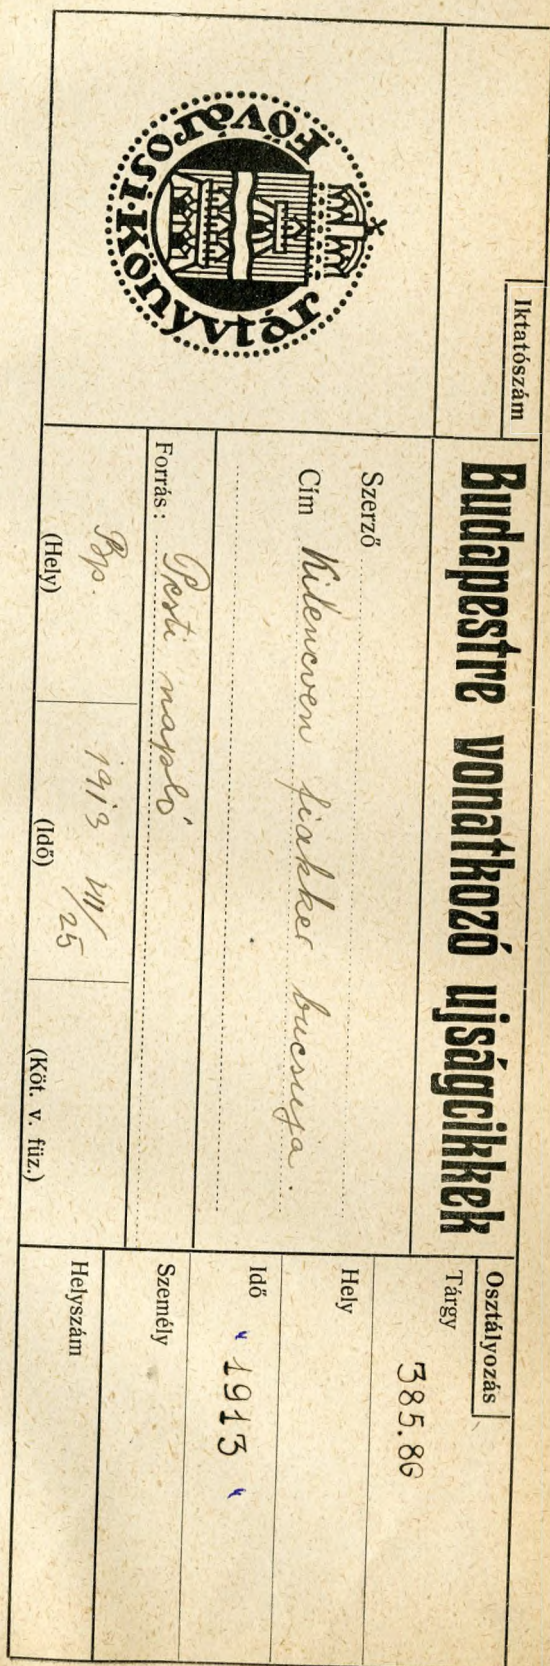 Fővárosi·Könyvtár
Iktatószám
Budapestre vonatkozó ujságcikkek
Szerző
Cím Kilencven fiakker bucsuja.
Forrás: Pesti napló
Bp. 1913 VII/25
(Hely) (Idő) (Köt. v. füz.)
Osztályozás
Tárgy 385.86
Hely
Idő "1913"
Személy
Helyszám